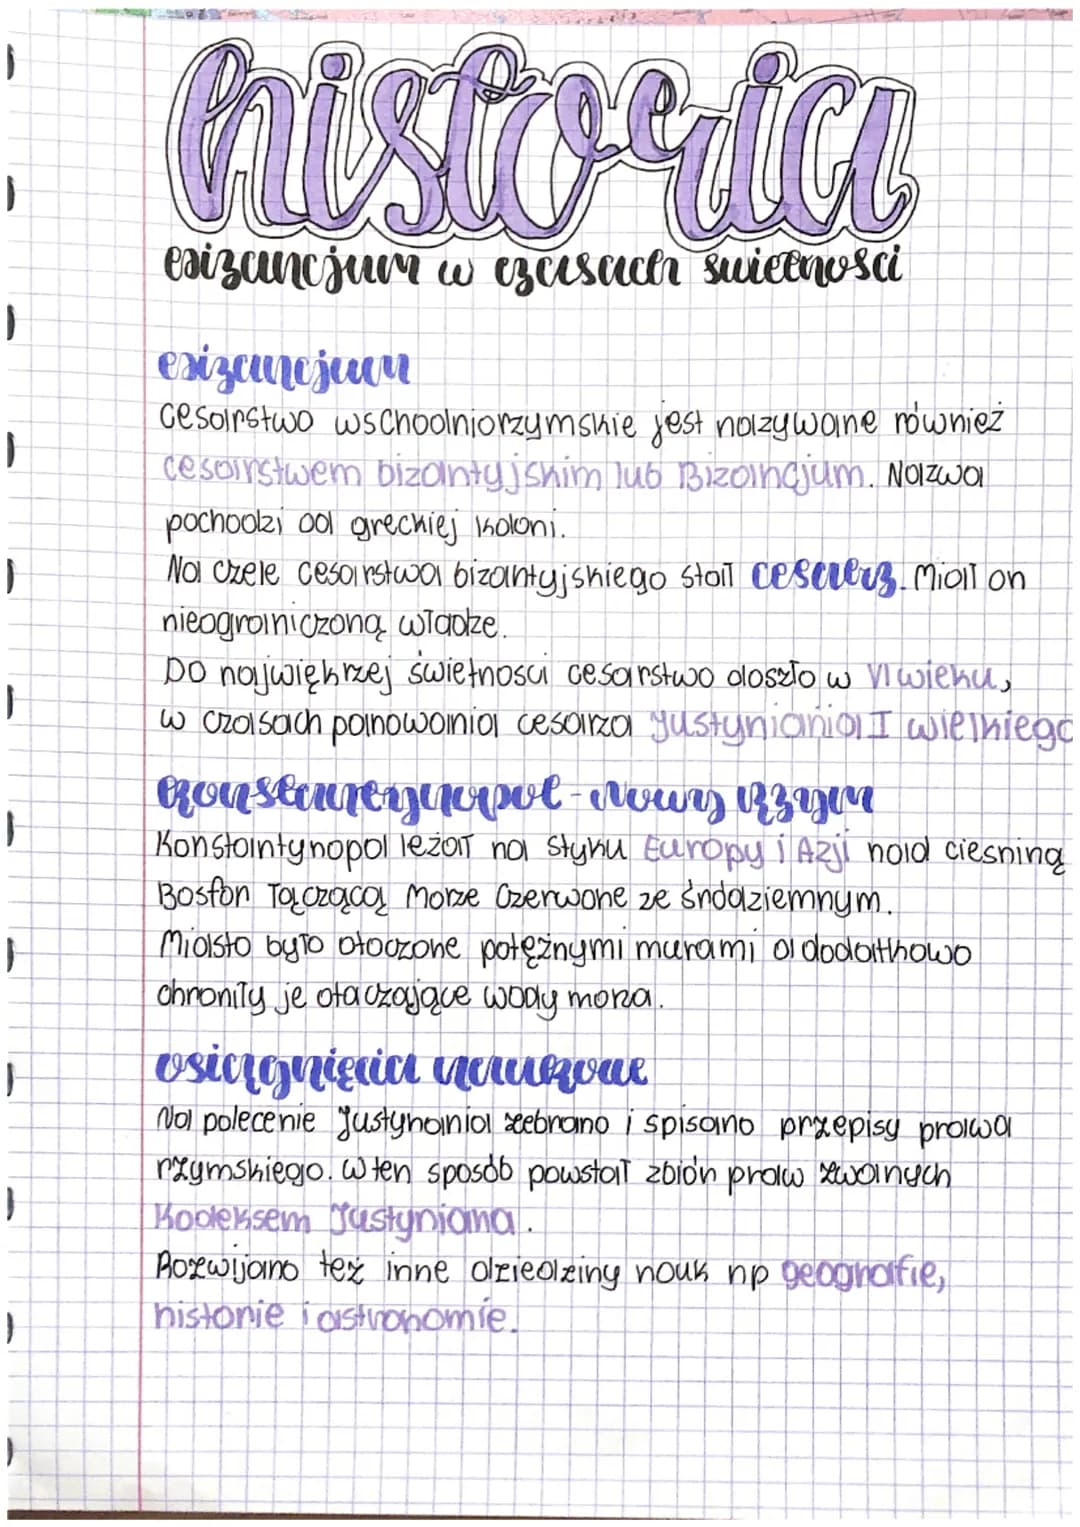 historia
Bizancjum w czasach świetności
Bizancjum
Cesarstwo wschodniorzymskie jest nazywane również
cesarstwem bizantyjskim lub Bizancjum. Nazwa
pochodzi od greckiej koloni.
Na czele cesarstwa bizantyjskiego stał cesarz. Miał on
nieograniczoną władze.
Do największej świetnosci cesarstwo doszło w VI wieku,
w czasach panowania cesarza Justyniania I wielkiego
Konstantynopol - Nowy Rzym
Konstantynopol leżał na styku Europy i Azji nad ciesniną
Bosfor łączącą Morze Czerwone ze śródziemnym.
Miasto było otoczone potężnymi murami a dodatkowo
chroniły je otaczające wody morza.
osiągnięcia naukowe
Na polecenie Justyniania zebrano i spisano przepisy prawa
rzymskiego. W ten sposób powstał zbiór praw zwanych
Kodeksem Justyniana.
Rozwijano też inne dziedziny nauk np geografie,
historie i astronomie.